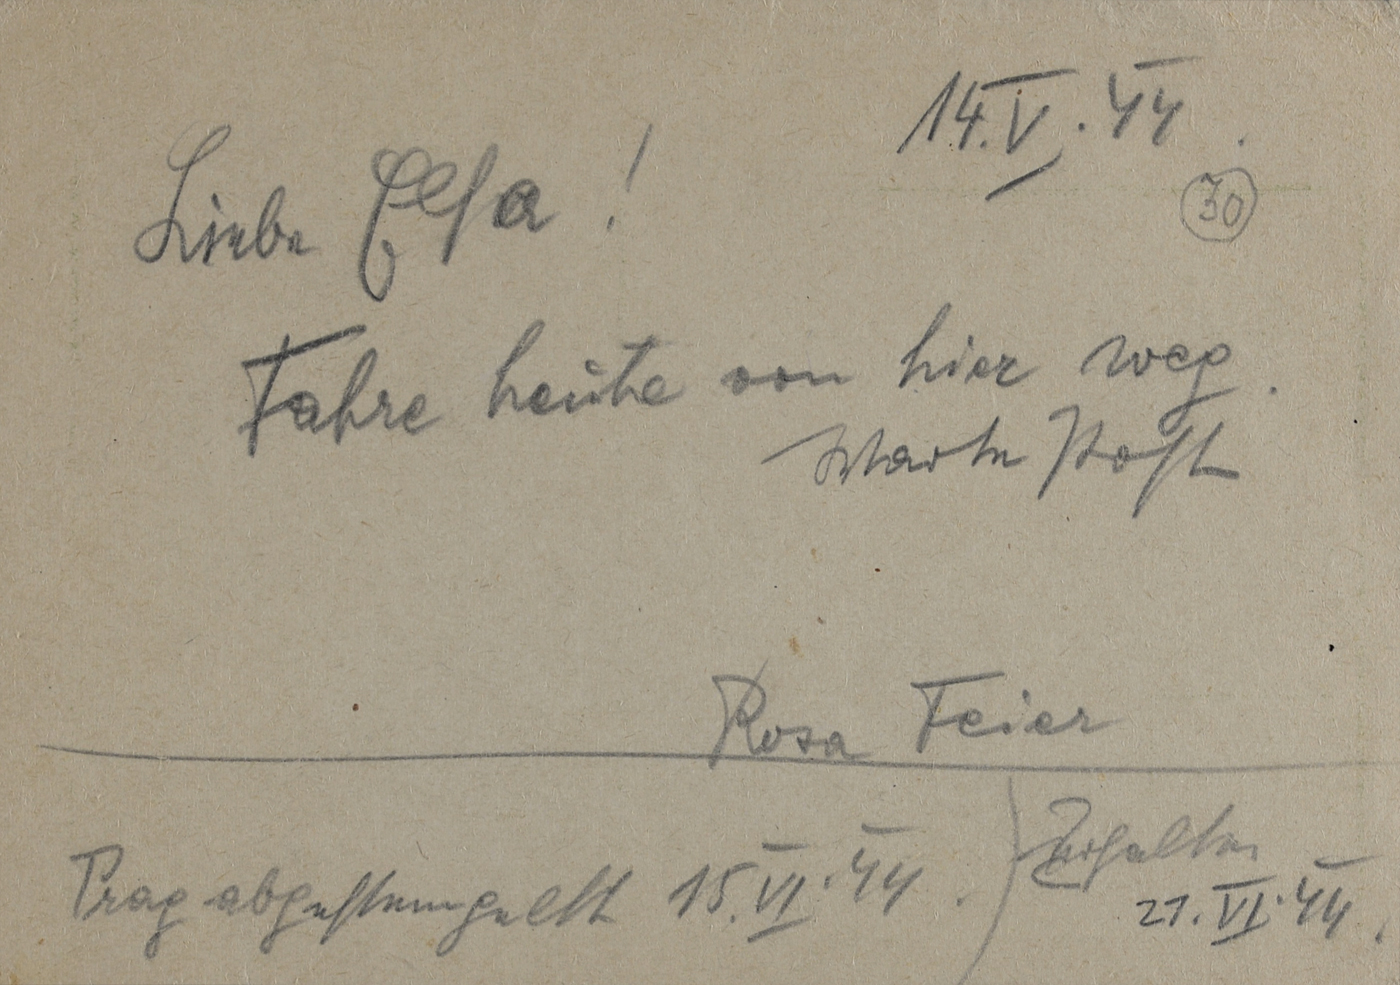 14.V.44.
30
Liebe Elsa!
Fahre heute von hier weg.
Warte Post
Rosa Feier
Prag abgestempelt 15.VI.44.
Erhalten
21.VI.44.